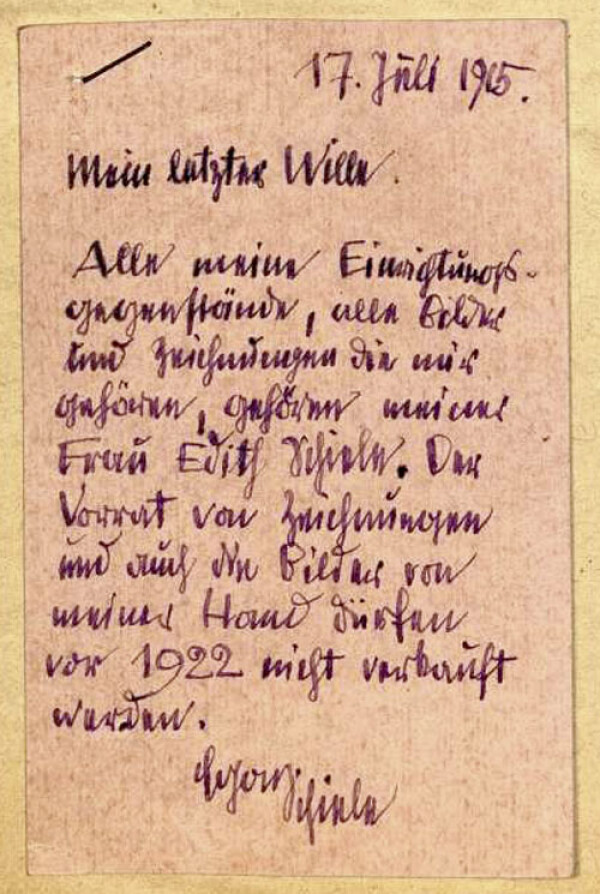 17. Juli 1915.
Mein letzter Wille.
Alle meine Einrichtungs-
gegenstände, alle Bilder
und Zeichnungen die mir
gehören, gehören meiner
Frau Edith Schiele. Der
Vorrat von Zeichnungen
und auch die Bilder von
meiner Hand dürfen
vor 1922 nicht verkauft
werden.
Egon Schiele